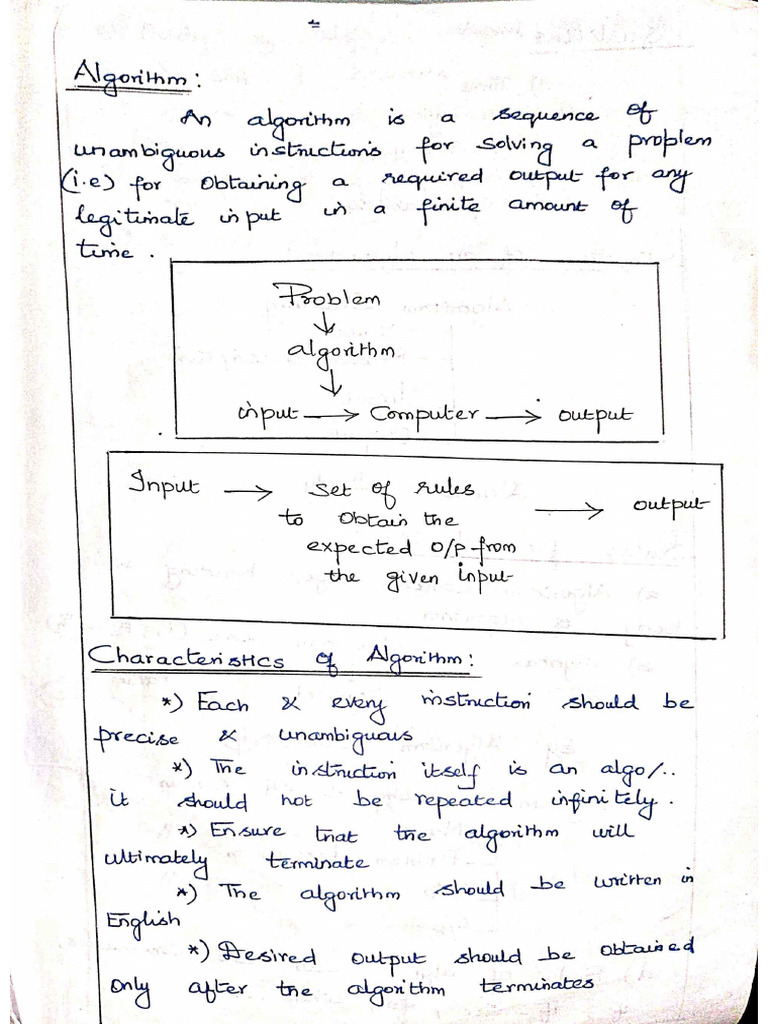 Algorithm:
An algorithm is a sequence of
unambiguous instructions for solving a problem
(i.e) for obtaining a required output for any
legitimate input in a finite amount of
time.
Problem
↓
algorithm
↓
input → Computer → output
Input → set of rules → output
to obtain the
expected o/p from
the given input
Characteristics of Algorithm:
*) Each & every instruction should be
precise & unambiguous
*) The instruction itself is an algo/..
it should not be repeated infinitely.
*) Ensure that the algorithm will
ultimately terminate
*) The algorithm should be written in
English
*) Desired output should be obtained
only after the algorithm terminates